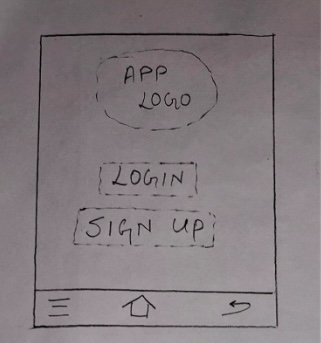 APP
LOGO
LOGIN
SIGN UP